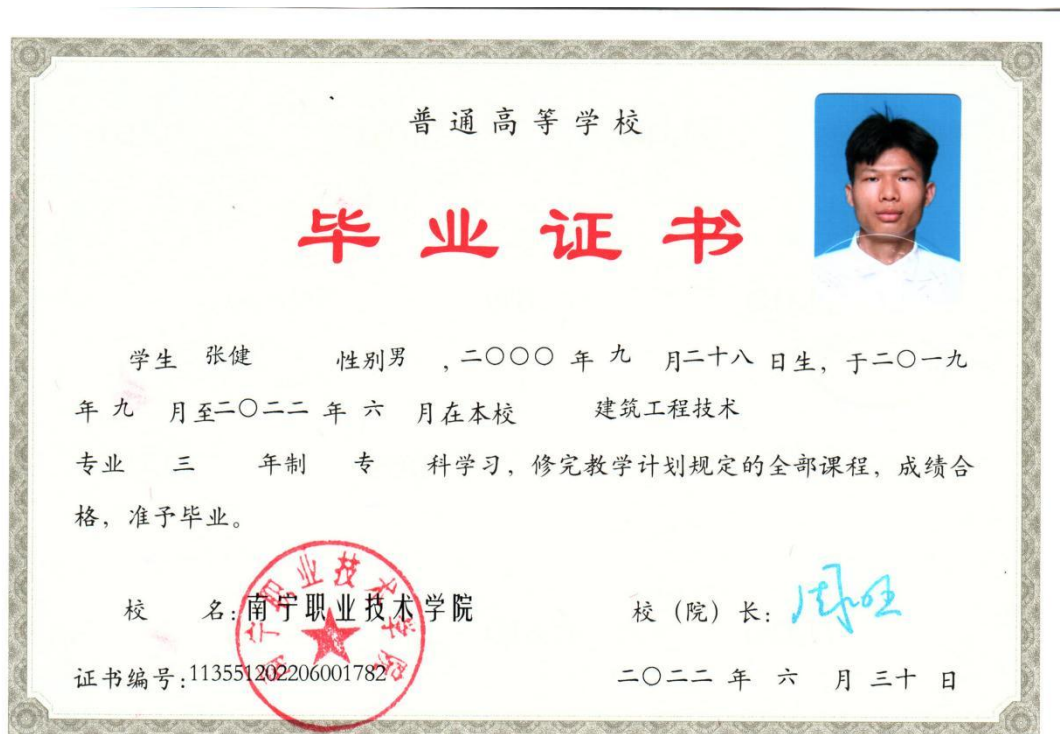 普通高等学校
毕业证书
学生 张健 性别男 ，二〇〇〇 年 九 月二十八 日生，于二〇一九
年 九 月至二〇二二 年 六 月在本校 建筑工程技术
专业 三 年制 专 科学习，修完教学计划规定的全部课程，成绩合
格，准予毕业。
校 名：南宁职业技术学院 校（院）长：周旺
南宁职业技术学院
证书编号：113551202206001782 二〇二二 年 六 月 三十 日